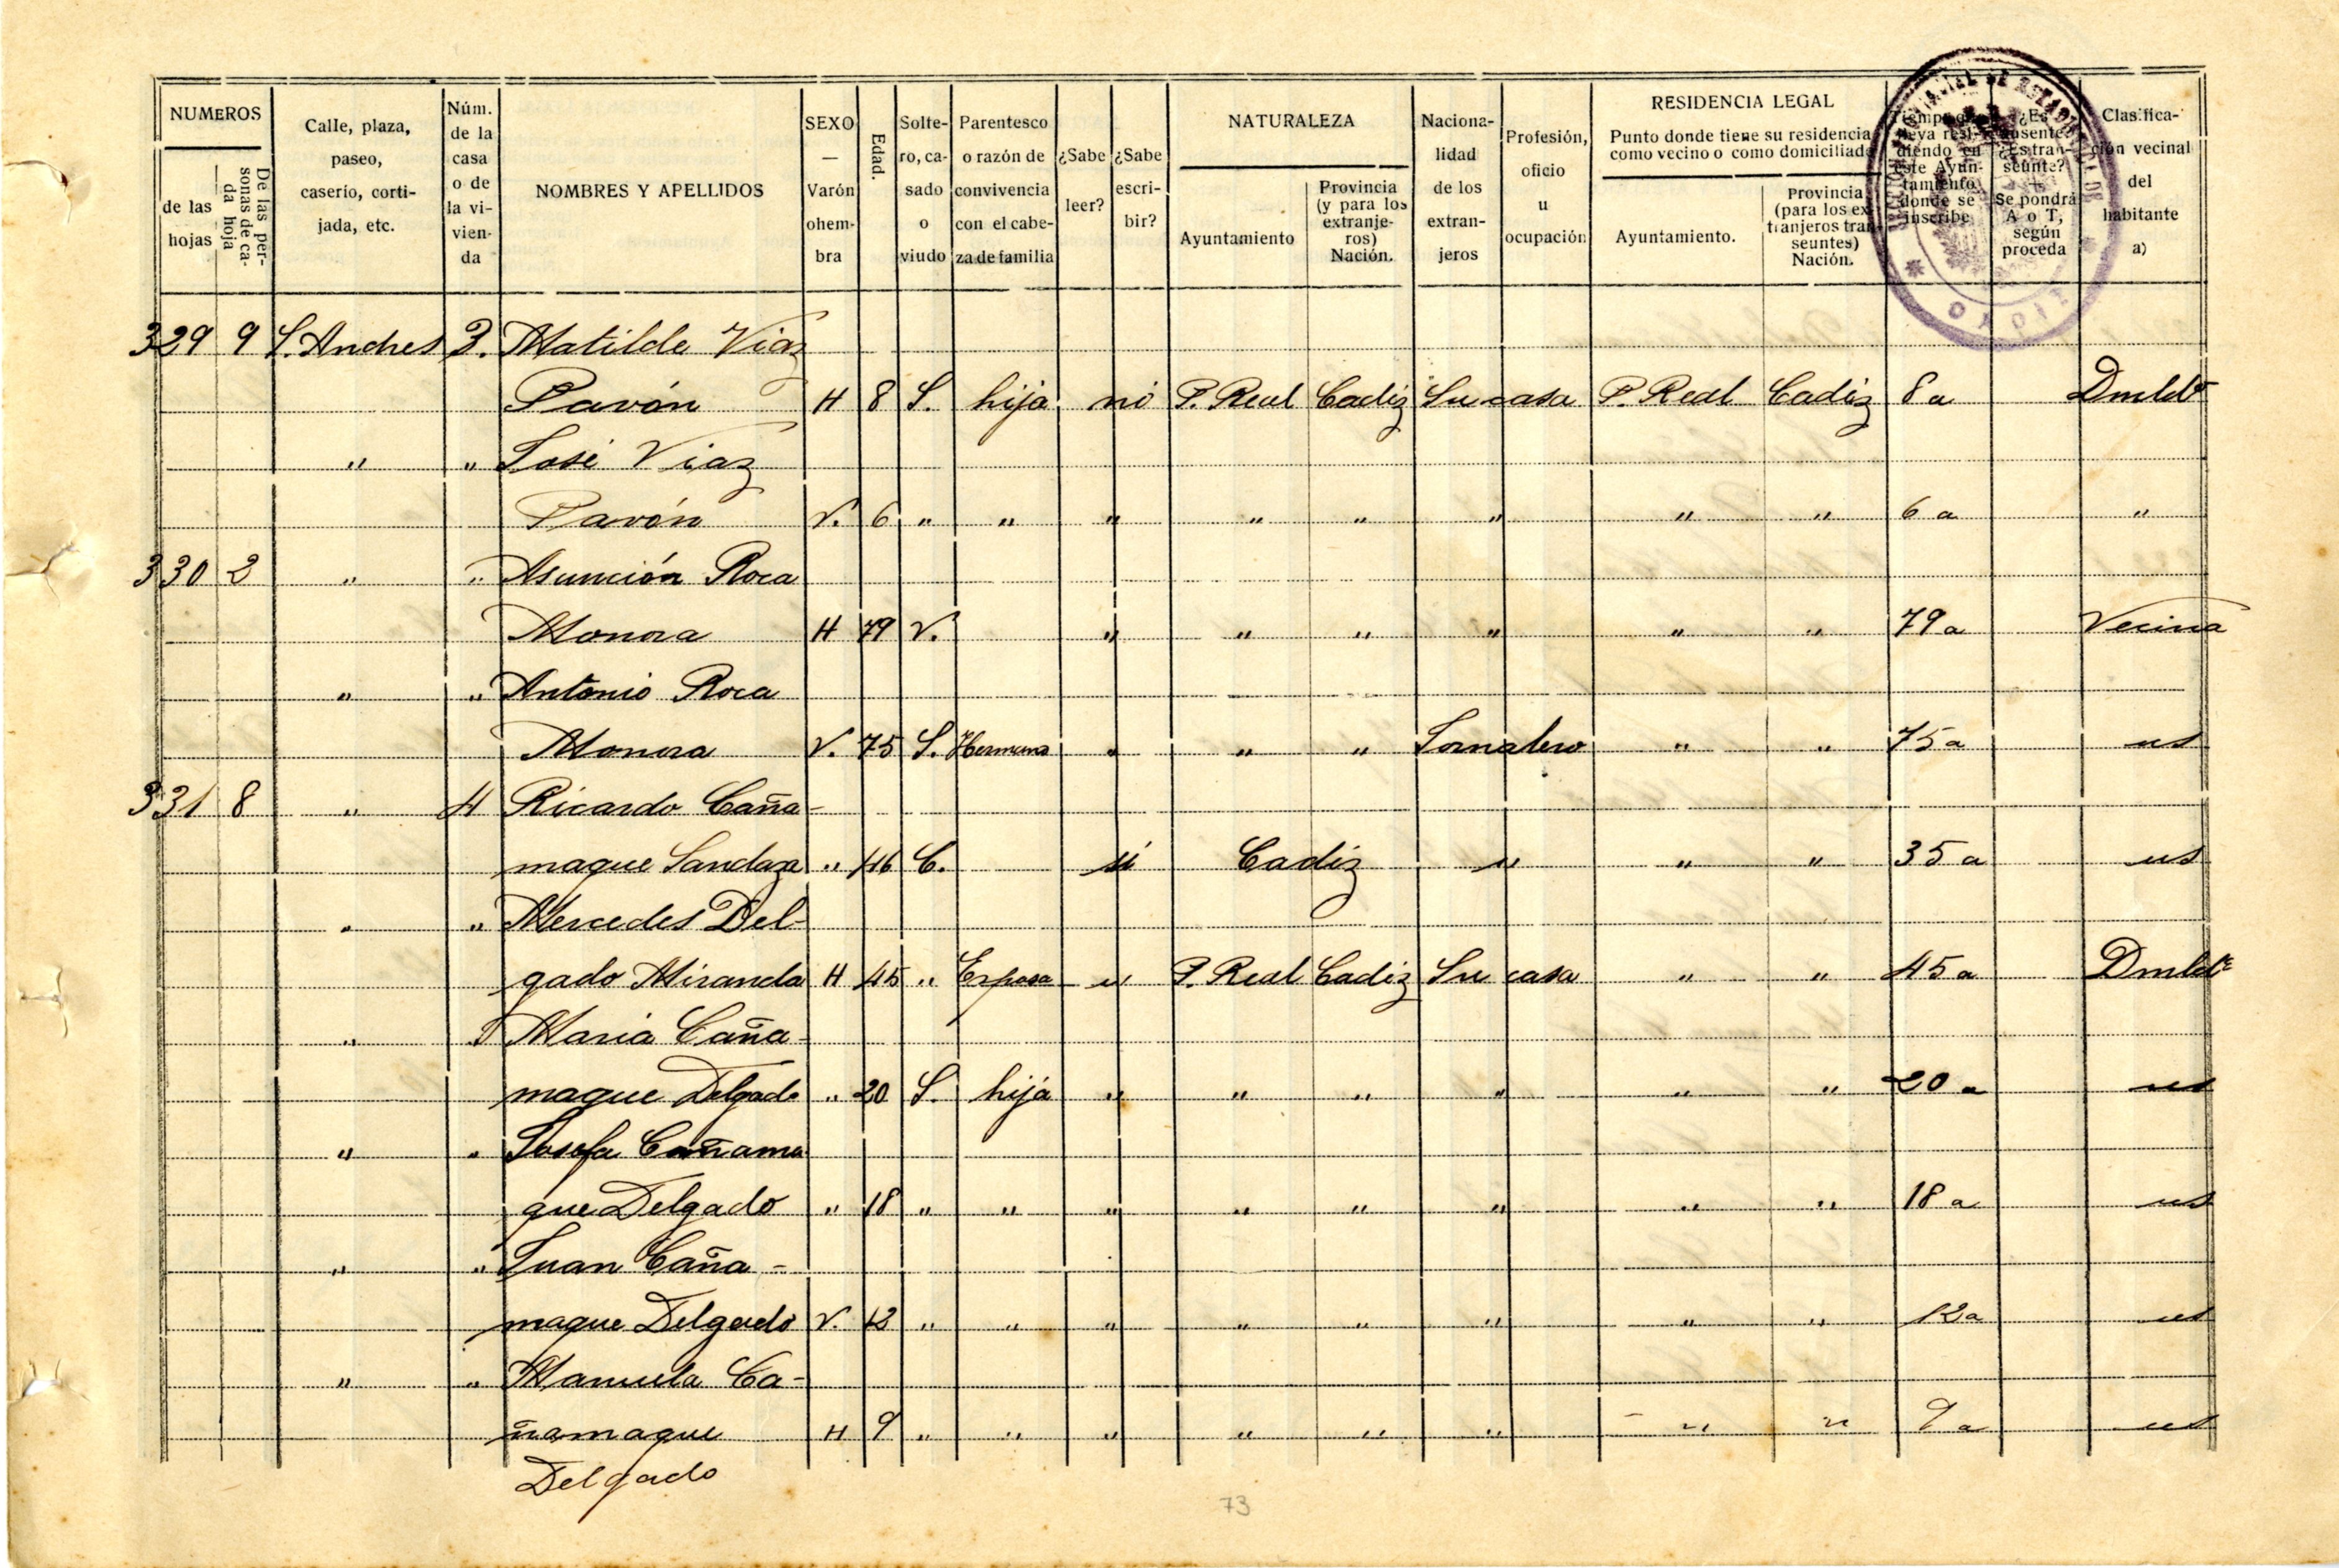 NUMEROS
de las hojas
De las personas de cada hoja
Calle, plaza, paseo, caserío, cortijada, etc.
Núm. de la casa o de la vivienda
NOMBRES Y APELLIDOS
SEXO — Varón o hembra
Edad.
Soltero, casado o viudo
Parentesco o razón de convivencia con el cabeza de familia
¿Sabe leer?
¿Sabe escribir?
NATURALEZA
Ayuntamiento
Provincia (y para los extranjeros) Nación.
Nacionalidad de los extranjeros
Profesión, oficio u ocupación
RESIDENCIA LEGAL
Punto donde tiene su residencia como vecino o como domiciliado
Ayuntamiento.
Provincia (para los extranjeros transeuntes) Nación.
Tiempo que lleva residiendo en este Ayuntamiento donde se inscribe
¿Es ausente? ¿Es transeunte? Se pondrá A o T, según proceda
Clasificación vecinal del habitante a)
329 9 S. Andres 3. Matilde Viaz
Pavón H 8 S. hija no P. Real Cadiz Su casa P. Real Cadiz 8 a Dmldº
" " José Viaz
Pavón V. 6 " " " " " " " " 6 a "
330 2 " " Asunción Roca
Monora H 79 V. " " " " " " 79 a Vecina
" " Antonio Roca
Monora V. 75 S. Hermano " " " Jornalero " " 75 a us
331 8 " 4 Ricardo Caña-
maque Sandaza " 46 C. si Cadiz " " " 35 a us
" " Mercedes Del-
gado Miranda H 45 " Esposa " P. Real Cadiz Su casa " " 45 a Dmldº
" " Maria Caña-
maque Delgado " 20 S. hija " " " " " " 20 a us
" " Josefa Cañama
que Delgado " 18 " " " " " " " " 18 a us
" " Juan Caña-
maque Delgado V. 12 " " " " " " " " 12 a us
" " Manuela Ca-
ñamaque H 9 " " " " " " " " 9 a us
Delgado
73